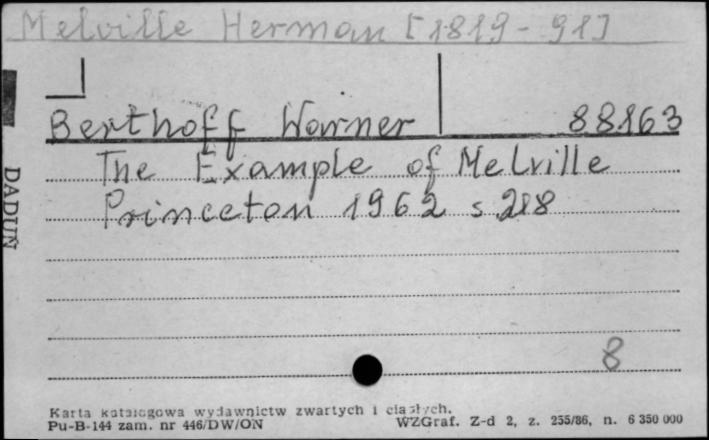 Melville Herman [1819-91]
Berthoff Warner 88163
The Example of Melville
Princeton 1962 s 218
8
DADUN
Karta katalogowa wydawnictw zwartych i ciągłych.
Pu-B-144 zam. nr 446/DW/ON WZGraf. Z-d 2, z. 255/86, n. 6 350 000